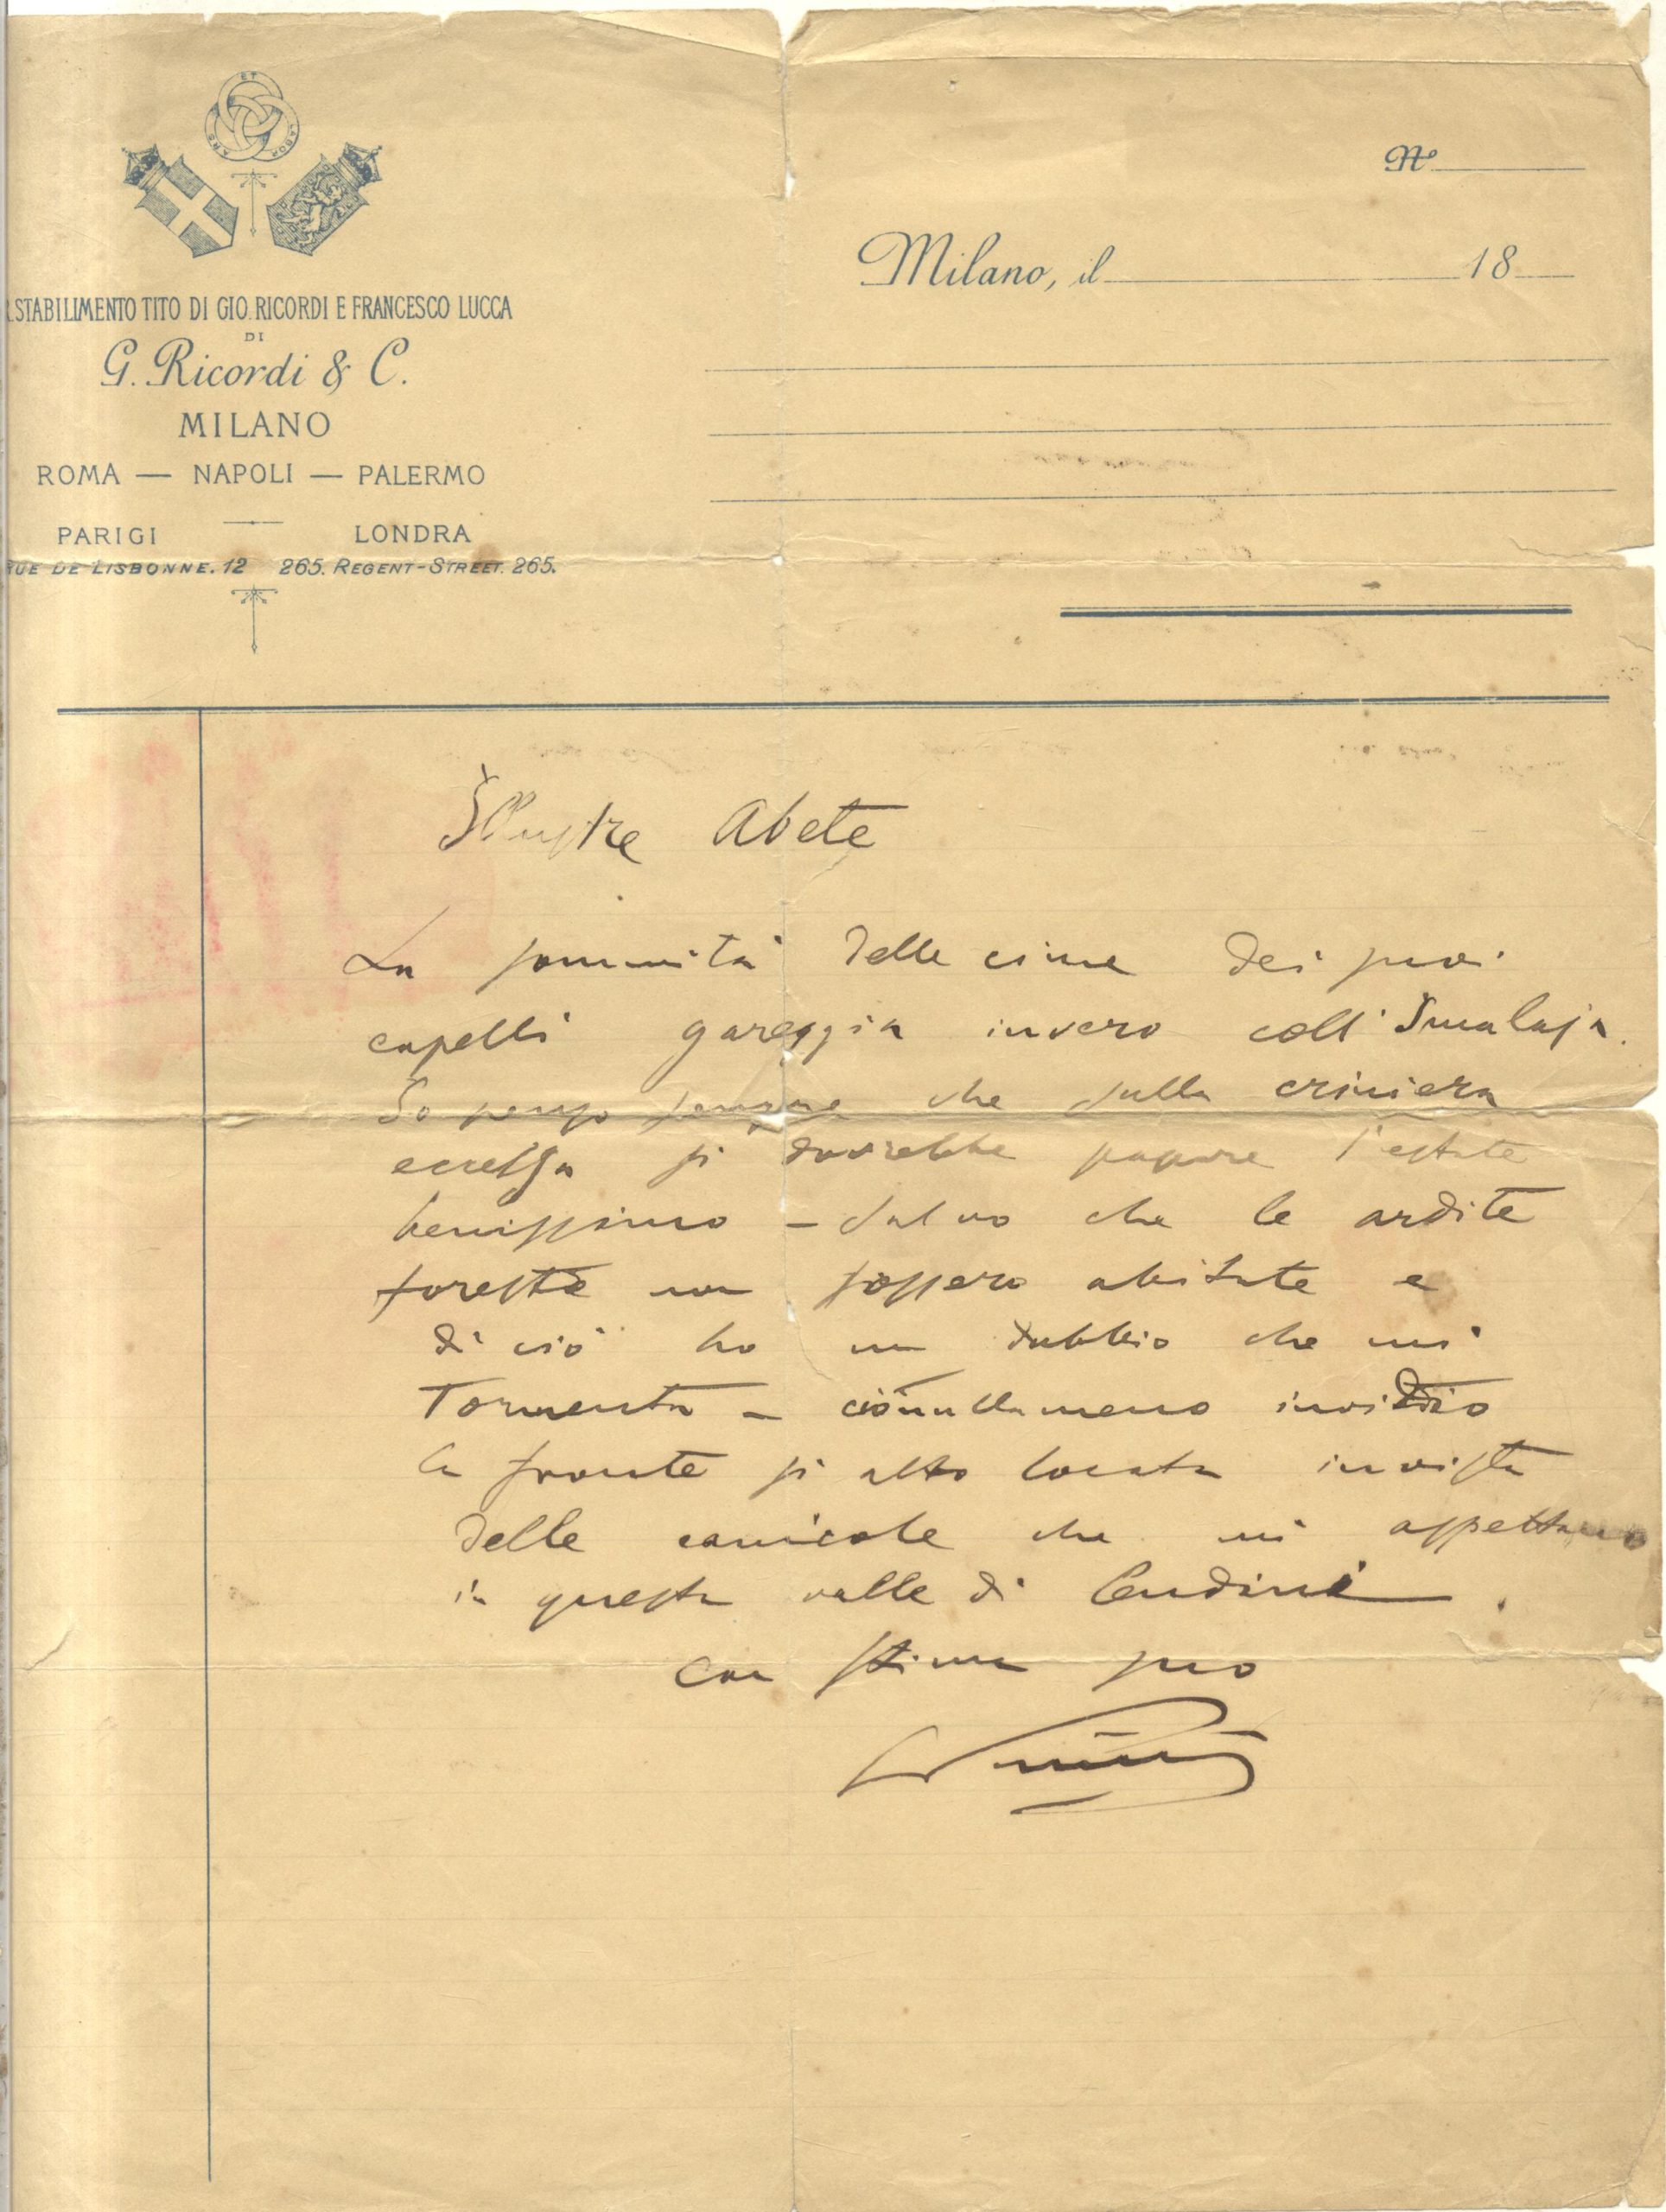 ARS ET LABOR
R. STABILIMENTO TITO DI GIO. RICORDI E FRANCESCO LUCCA
DI
G. Ricordi & C.
MILANO
ROMA — NAPOLI — PALERMO
PARIGI LONDRA
RUE DE LISBONNE. 12 265. REGENT-STREET. 265.
No
Milano, il 18
Illustre Abete
La sommità delle cime dei suoi
capelli gareggia invero coll'Imalaja.
Io penso che sulla criniera
eccelsa si dovrebbe passare l'estate
benissimo – salvo che le ardite
foreste non fossero abitate e
di ciò ho un dubbio che mi
tormenta – ciònullameno invidio
la fronte sì alto locata in vista
delle canicole che mi aspettano
in questa valle di
con stima suo